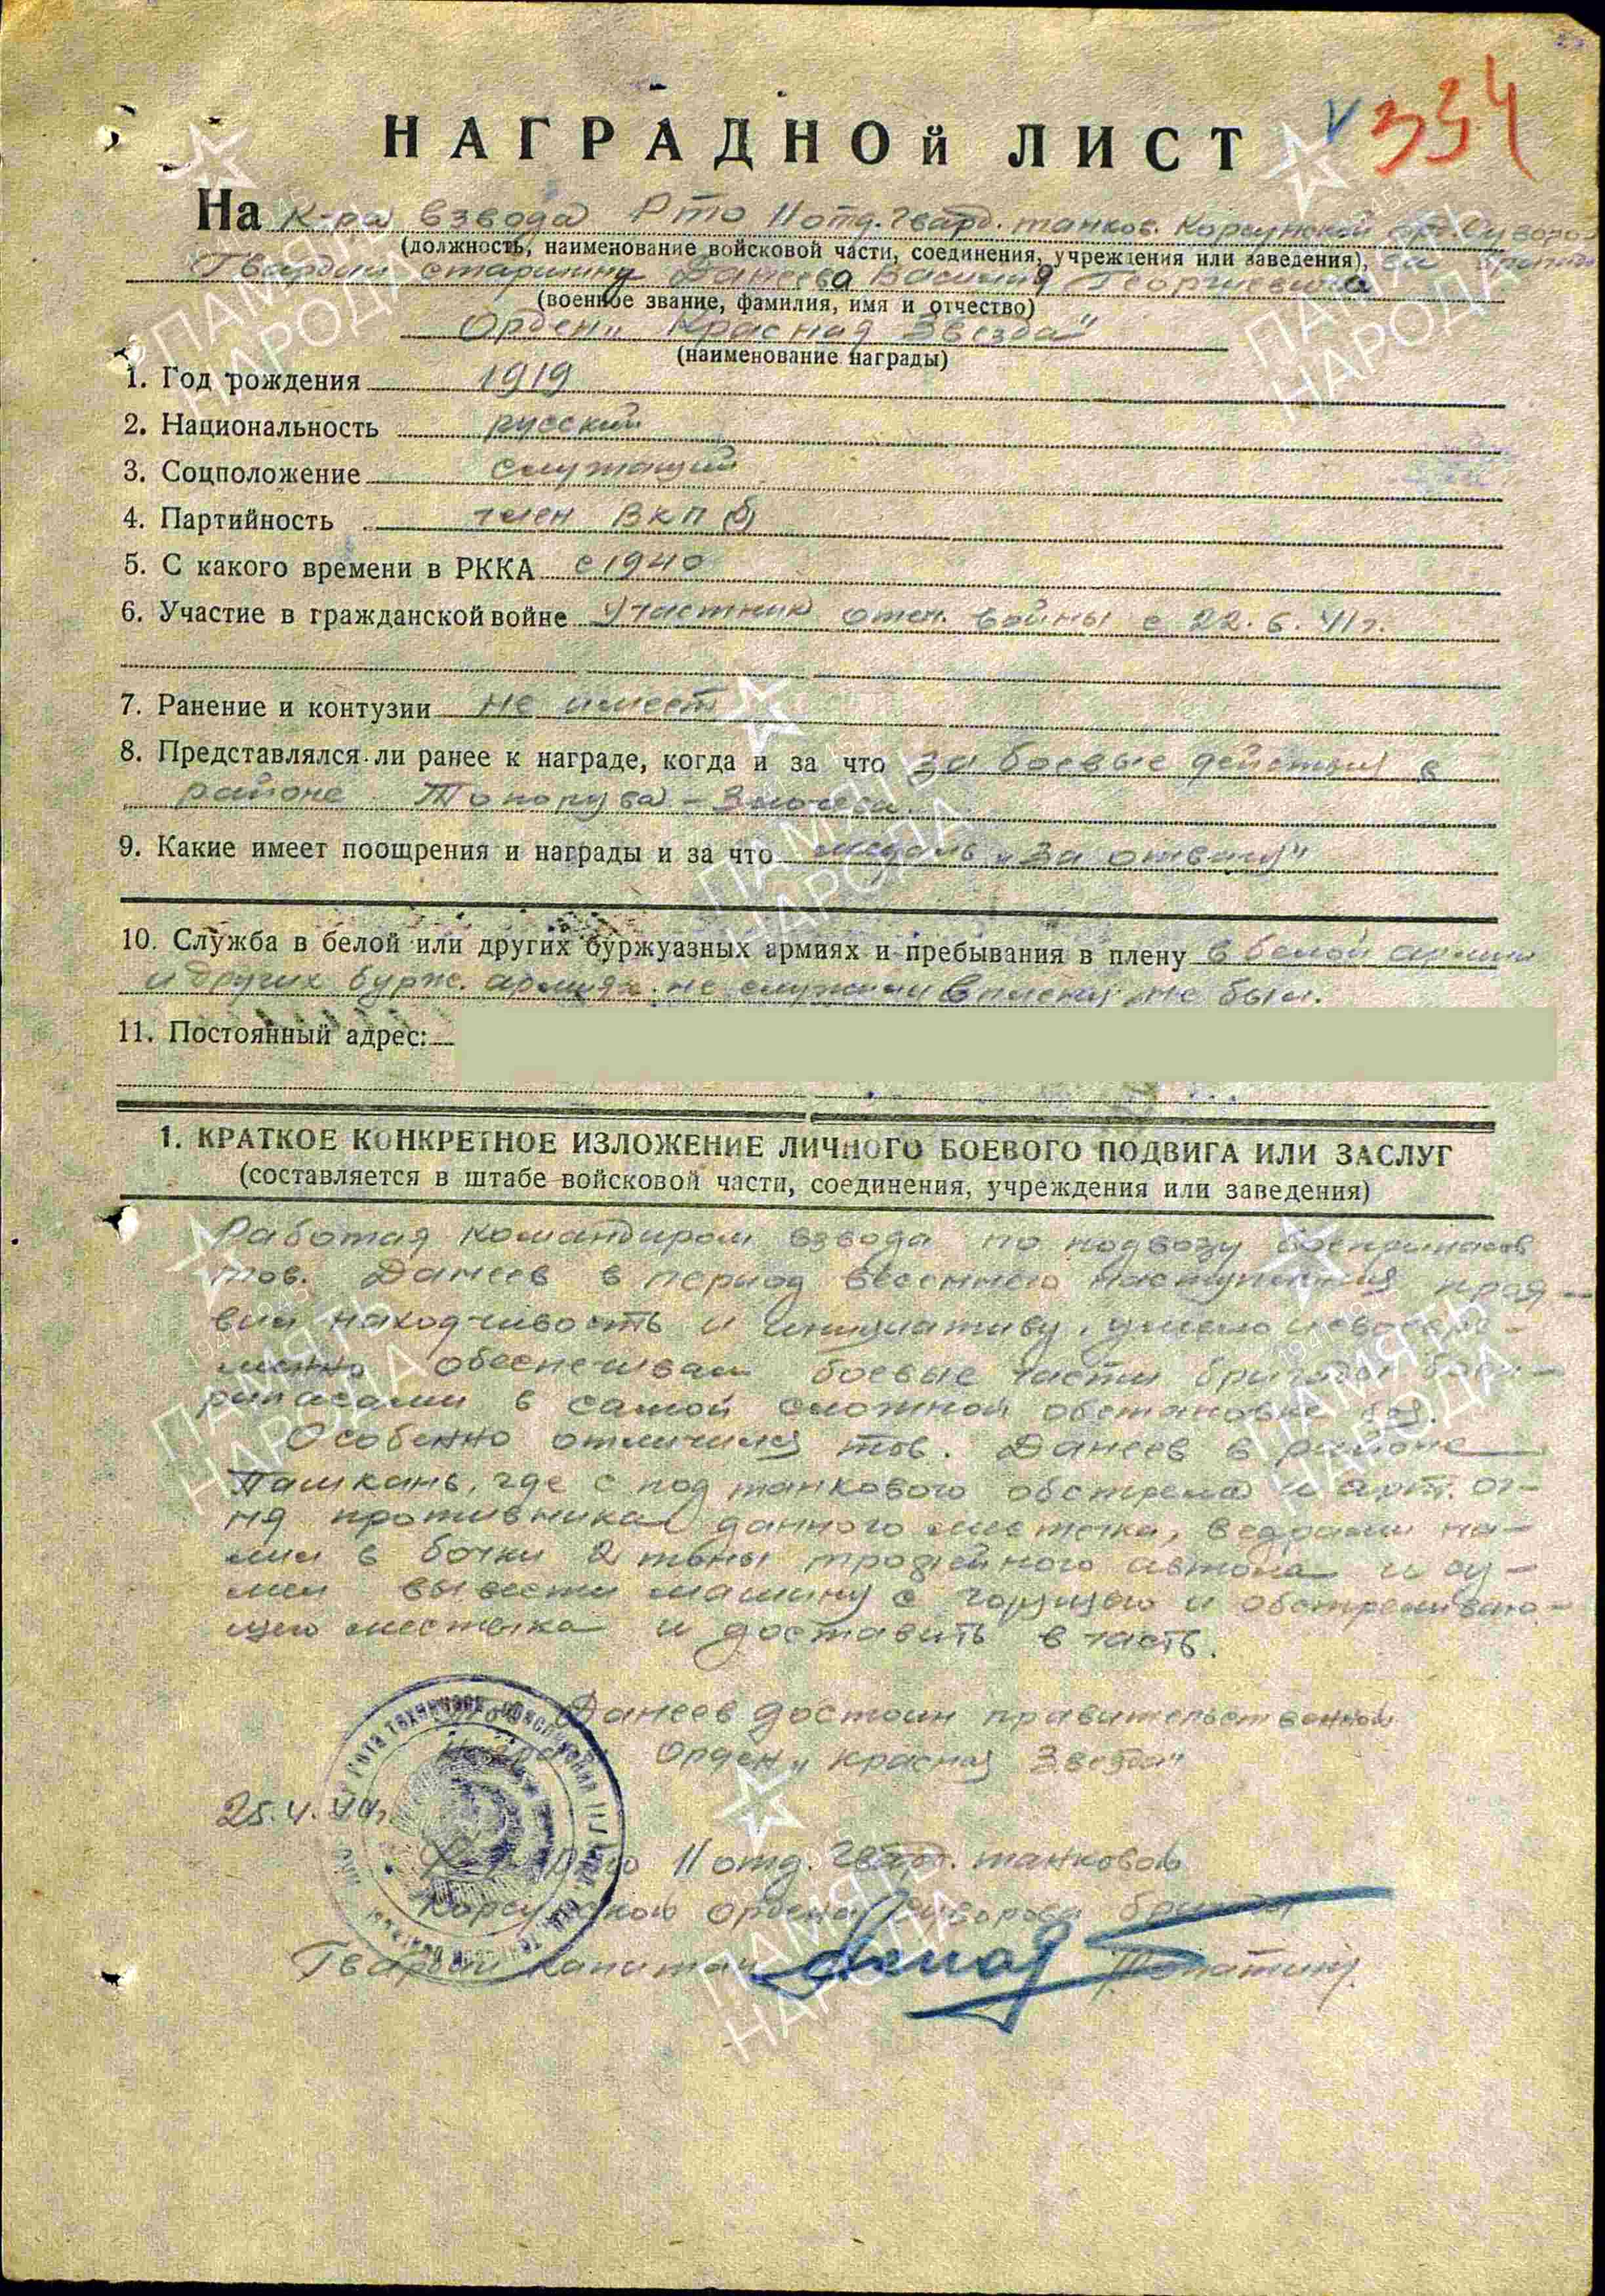 334
НАГРАДНОЙ ЛИСТ
На к-ра взвода Рто 11 отд. Гвард. танков. Корсунской орд. Суворо-
(должность, наименование войсковой части, соединения, учреждения или заведения), вой бригады
Гвардии старшину Данеева Василия Георгиевича
(военное звание, фамилия, имя и отчество)
Орден „Красная Звезда"
(наименование награды)
1. Год рождения 1919
2. Национальность русский
3. Соцположение служащий
4. Партийность член ВКП(б)
5. С какого времени в РККА с 1940
6. Участие в гражданской войне Участник отеч. войны с 22.6.41г.
7. Ранение и контузии не имеет
8. Представлялся ли ранее к награде, когда и за что за боевые действия в
районе Топорува-Злочева
9. Какие имеет поощрения и награды и за что медаль „За отвагу"
10. Служба в белой или других буржуазных армиях и пребывания в плену в белой армии
и других бурж. армиях не служил и в плену не был.
11. Постоянный адрес:
1. КРАТКОЕ КОНКРЕТНОЕ ИЗЛОЖЕНИЕ ЛИЧНОГО БОЕВОГО ПОДВИГА ИЛИ ЗАСЛУГ
(составляется в штабе войсковой части, соединения, учреждения или заведения)
Работая командиром взвода по подвозу боеприпасов
тов. Данеев в период весеннего наступления проя-
вил находчивость и инициативу, умело и своевре-
менно обеспечивал боевые части бригады боеп-
рипасами в самой сложной обстановке боя.
Особенно отличился тов. Данеев в районе
Пашкань, где с под танкового обстрела и арт. ог-
ня противника данного местечка, ведрами на-
лил в бочки 2 тонны трофейного автола и су-
мел вывести машину с горящего и обстреливаю-
щего местечка и доставить в часть.
Данеев достоин правительственной
награды Орден „Красная Звезда"
25.4.44г.
К-р Рто 11 отд. Гвард. танковой
Корсунской ордена Суворова бригады
Гвардии капитан /Лопатин/.
ПАМЯТЬ НАРОДА